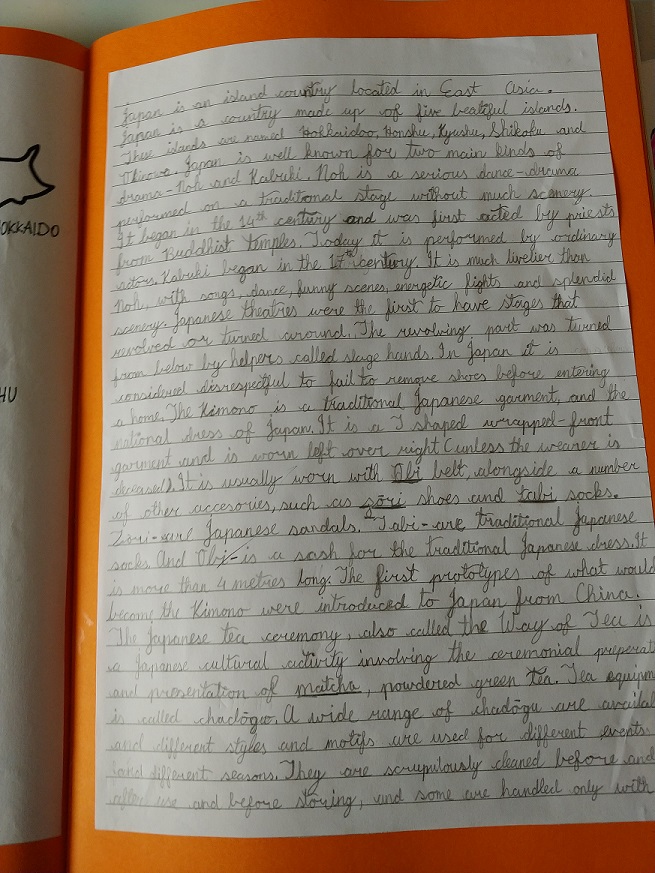 OKKAIDO
HU
Japan is an island country located in East Asia.
Japan is a country made up of five beatiful islands.
Thee islands are named Hokkaidoo, Honshu, Kyushu, Shikoku and
Okinawa. Japan is well known for two main kinds of
drama-Noh and Kabuki. Noh is a serious dance-drama
performed on a traditional stage without much scenery.
It began in the 14th century and was first acted by priests
from Buddhist temples. Today it is performed by ordinary
actors. Kabuki began in the 17th century. It is much livelier than
Noh, with songs, dance, funny scenes, energetic fights and splendid
scenery. Japanese theatres were the first to have stages that
revolved or turned around. The revolving part was turned
from below by helpers called stage hands. In Japan it is
considered disrespectful to fail to remove shoes before entering
a home. The Kimono is a traditional Japanese garment, and the
national dress of Japan. It is a T shaped wrapped-front
garment and is worn left over right (unless the wearer is
deceased). It is usually worn with Obi belt, alongside a number
of other accesories, such as zōri shoes and tabi socks.
Zōri-are Japanese sandals. Tabi-are traditional Japanese
socks. And Obi-is a sash for the traditional Japanese dress. It
is more than 4 metres long. The first prototypes of what would
become the Kimono were introduced to Japan from China.
The Japanese tea ceremony, also called the Way of Tea is
a Japanese cultural activity involving the ceremonial preparat
and presentation of matcha, powdered green tea. Tea equipm
is called chadōgu. A wide range of chadōgu are availal
and different styles and motifs are used for different events
and different seasons. They are scrupulously cleaned before and
after use and before storing, and some are handled only with